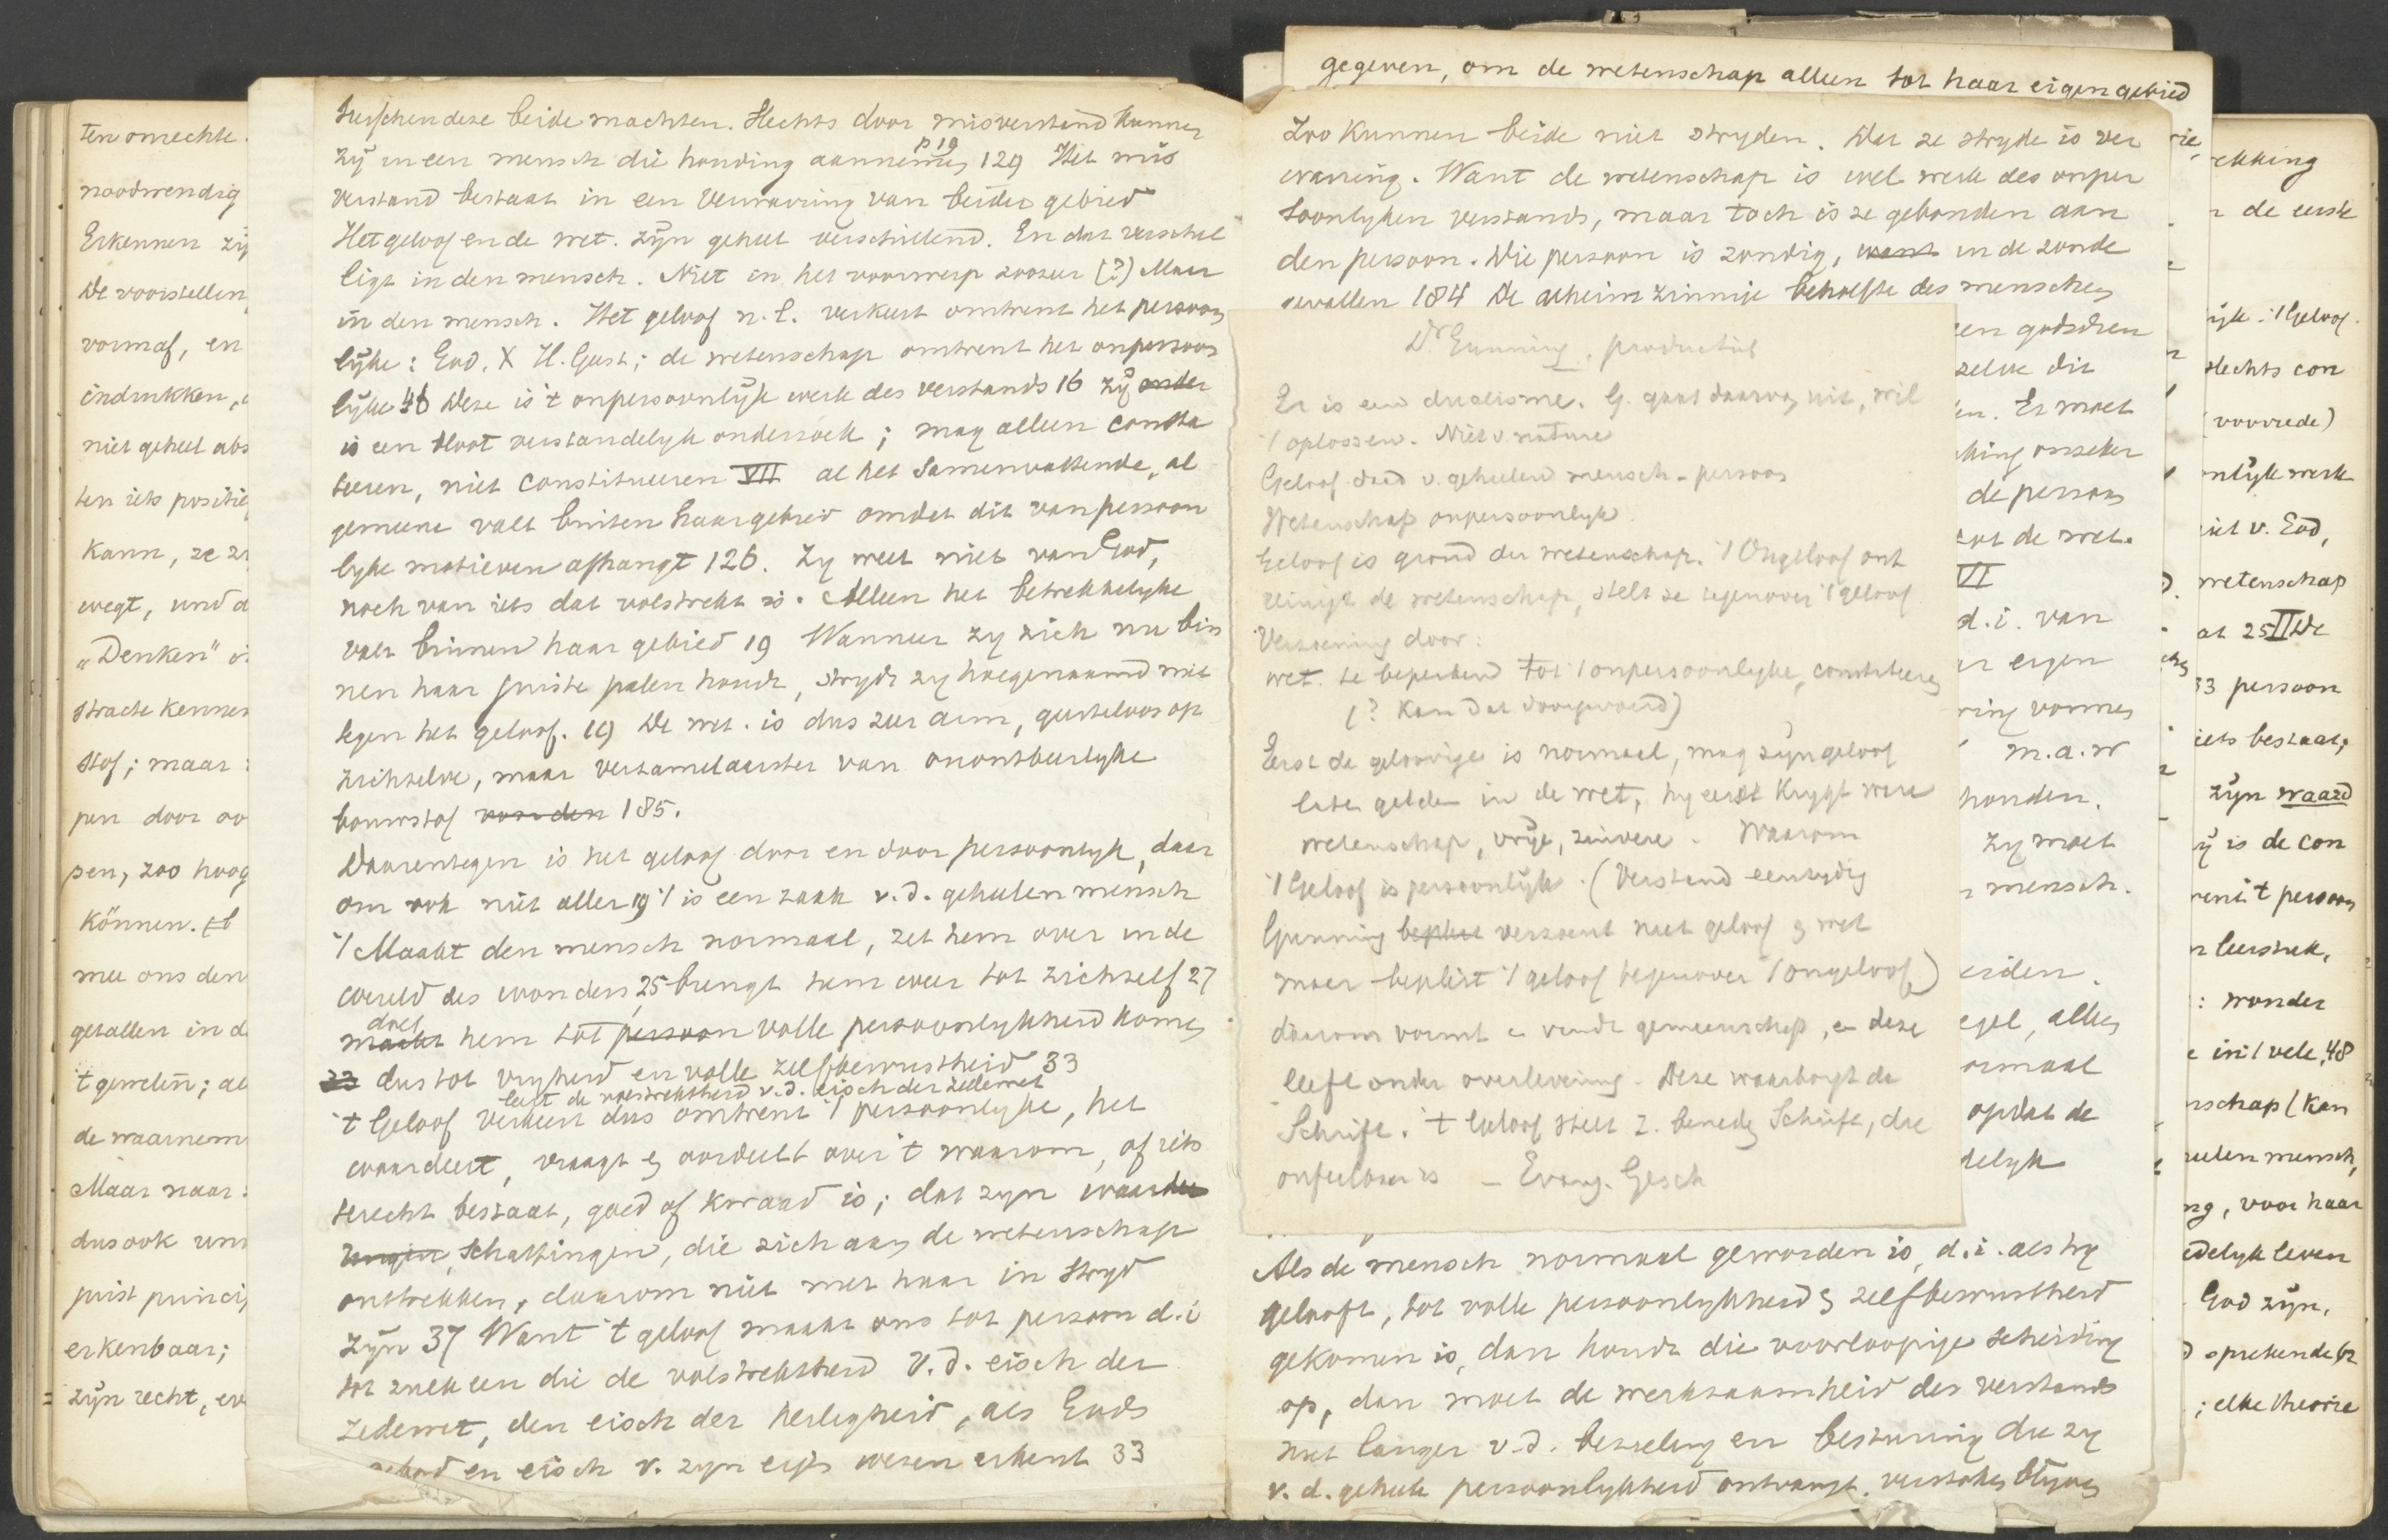 ten onrechte.
noodwendig
Erkennen zij
De voorstellin
vormaf, en
indrukken,
niet geheel abs
ten iets positie
kann, ze zi
wegt, und d
"Denken" i
stracte kennen
stof; maar
pen door oo
pen, zoo hoog
können.
mee ons den
getallen in d
't geweten; al
de waarnem
Maar naar
dus ook uni
juist princi
erkenbaar;
zijn recht, en
tusschen deze beide machten. Slechts door misverstand kunnen
p 19
zij in een mensch die houding aannemen 129 Het mis
verstand bestaat in een verwarring van beider gebied
Het geloof en de wet. zijn geheel verschillend. En dat verschil
ligt in den mensch. Niet in het voorwerp zoozeer (?) Maar
in den mensch. Het geloof n.l. verkeert omtrent het persoon
lijke: God, X H. Geest; de wetenschap omtrent het onpersoon
lijke 48 Deze is 't onpersoonlijk werk des verstands 16 zij onder
is een bloot verstandelijk onderzoek; mag alleen consta
teeren, niet constitueeren VII al het samenvattende, al
gemeene valt buiten haar gebied omdat dit van persoon
lyke motieven afhangt 126. Zy weet niet van God,
noch van iets dat volstrekt is. Alleen het betrekkelyke
valt binnen haar gebied 19 Wanneer zy zich nu bin
nen haar juiste palen houdt, strydt zy hoegenaamd niet
tegen het geloof. 19) De wet. is dus zeer arm, geesteloos op
zichzelve, maar verzamelaarster van onontbeerlyke
bouwstof voor den 185.
Daarentegen is het geloof door en door persoonlyk, daar
om ook niet aller 19 't is een zaak v.d. geheelen mensch
't Maakt den mensch normaal, zet hem over in de
wereld des wonders, 25 brengt hem weer tot zichzelf 27
doet
maakt hem tot persoon volle persoonlykheid komen
33 dus tot vryheid en volle zelfbewustheid 33
leert de volstrektheid v.d. eisch der zedewet
't Geloof verkeert dus omtrent 't persoonlyke, het
waardeert, vraagt & oordeelt over 't waarom, of iets
terecht bestaat, goed of kwaad is; dat zyn waardee
ringen, schattingen, die zich aan de wetenschap
onttrekken, daarom niet met haar in stryd
zijn 37 Want 't geloof maakt ons tot persoon d.i
tot zulk een die de volstrektheid v.d. eisch der
zedewet, den eisch der heiligheid, als Gods
gebod en eisch v. zyn eigen wezen erkent 33
gegeven, om de wetenschap alleen tot haar eigen gebied
Zoo kunnen beide niet stryden. Dat ze stryde is ver
warring. Want de wetenschap is wel werk des onper
soonlyken verstands, maar toch is ze gebonden aan
den persoon. Die persoon is zondig, want in de zonde
gevallen 184 De geheimzinnige behoefte des menschen
Dr Gunning, productie
Er is een dualisme. G. gaat daarvan uit, wil
't oplossen. Niet v. nature
Geloof daad v. geheelen mensch - persoon
Wetenschap onpersoonlyk.
Geloof is grond der wetenschap. 't Ongeloof ont
reinigt de wetenschap, stelt ze tegenover 't geloof
Verzoening door:
wet. te beperken tot 't onpersoonlyke, constateeren
(? kan dat doorgevoerd)
Eerst de geloovige is normaal, mag zyn geloof
laten gelden in de wet, hy eerst krygt ware
wetenschap, vrije, zuivere. Waarom
't Geloof is persoonlijk. (Verstand eenzydig
Gunning bepleit verzoent niet geloof & wet
maar bepleit 't geloof tegenover 't ongeloof)
daarom vormt en vindt gemeenschap, en deze
leeft onder overlevering. Deze waarborgt de
Schrift. 't Geloof stelt z. beneden Schrift, die
onfeilbaar is — Evang. Gesch
een godsdien
zelve dit
en. Er moet
king onzeker
de persoon
tot de wet.
VI
d.i. van
er eigen
ring vormen
m.a.w
honden.
zy moet
mensch.
eiden.
egel, alles
ormaal
opdat de
delyk
Als de mensch normaal geworden is, d.i. als hy
gelooft, tot volle persoonlykheid & zelfbewustheid
gekomen is, dan houdt die voorloopige scheiding
op, dan moet de werkzaamheid des verstands
niet langer v.d. bezieling en besturing die zy
v.d. geheele persoonlykheid ontvangt, verstoken blyven
rie,
ekking
de eerste
ijk: 't Geloof
slechts con
(voorrede)
onlijk werk
niet v. God,
wetenschap
at 25 II De
33 persoon
iets bestaat,
zijn waard
ij is de con
rent 't persoon
leerstuk,
: wonder
in 't vele, 48
nschap (kan
eelen mensch,
ng, voor haar
edelyk leven
God zijn,
sprekende
; elke theorie